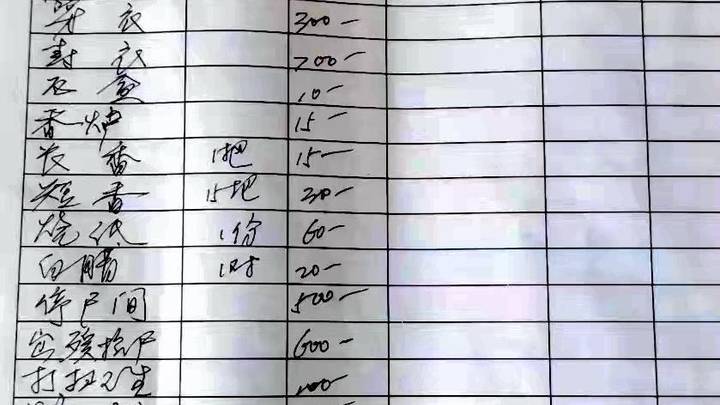 衣 300-
衣 700-
盒 10-
香炉 15-
长香 1把 15-
短香 15把 30-
烧纸 1份 60-
白腊 1对 20-
停尸间 500-
尸 600-
打扫卫生 100-